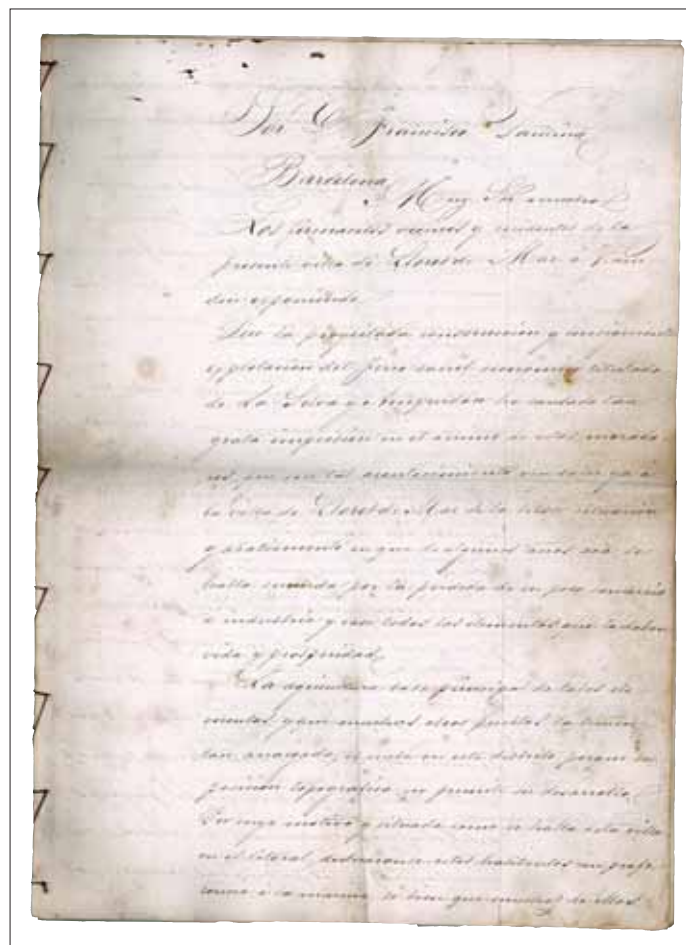 Sor D. Francisco
Barcelona
Muy Sor nuestro
Los vecinos y de la
presente villa de Lloret de Mar a V. aten
exponiendo.
Que la proyectada construccion y
explotacion del ferro carril economico titulado
de La Selva y Ampurdan ha causado tan
grata impresion en el animo de estos morado
res, que con tal acontecimiento
la villa de Lloret de Mar de la triste situacion
y abatimiento en que de algunos años acá se
halla sumida por la perdida de su poco comercio
e industria y con todos los elementos que le daban
vida y prosperidad.
La agricultura base principal de tales ele
mentos y que muchos otros pueblos la tienen
tan arraigada, es nula en este distrito porque su
posicion topografica no permite su desarrollo.
Por cuyo motivo y situada como se halla esta villa
en el litoral, estos habitantes con prefe
rencia a la marina, si bien que muchos de ellos